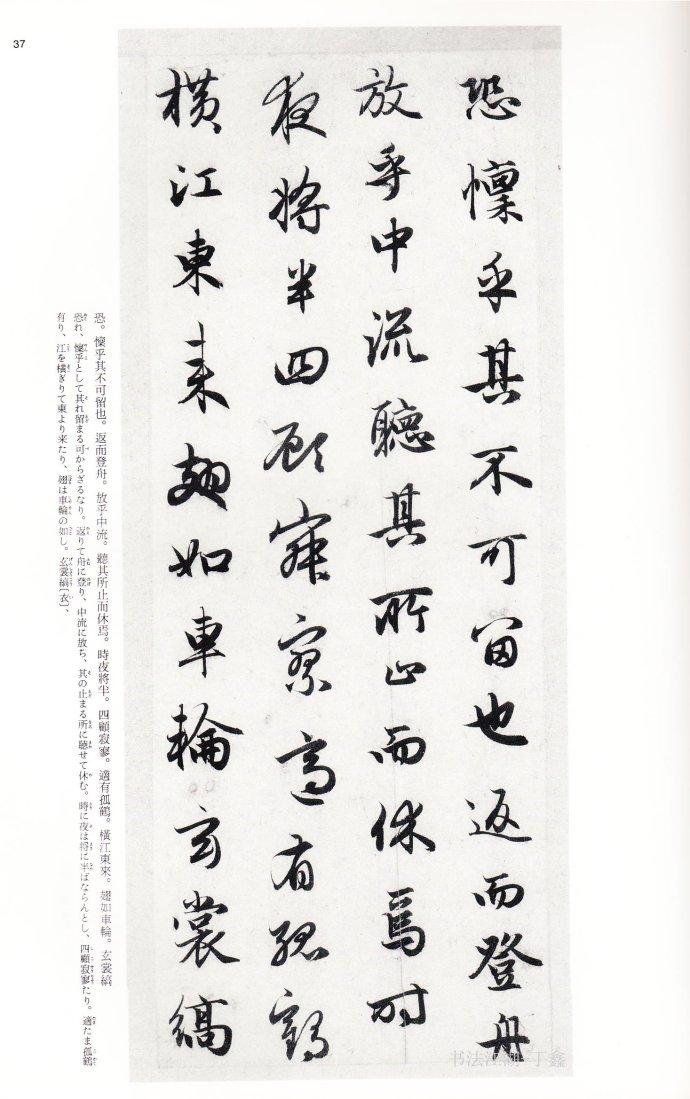 37
恐懍乎其不可留也返而登舟
放乎中流聽其所止而休焉時
夜將半四顧寂寥適有孤鶴
橫江東来翅如車輪玄裳縞
恐。懍乎其不可留也。返而登舟。放乎中流。聽其所止而休焉。時夜將半。四顧寂寥。適有孤鶴。橫江東來。翅如車輪。玄裳縞
恐れ、懍乎として其れ留まる可からざるなり。返りて舟に登り、中流に放ち、其の止まる所に聴せて休む。時に夜は将に半ばならんとし、四顧寂寥たり。適たま孤鶴
有り、江を横ぎりて東より来たり、翅は車輪の如し。玄裳縞〔衣〕、
书法江湖 丁鑫